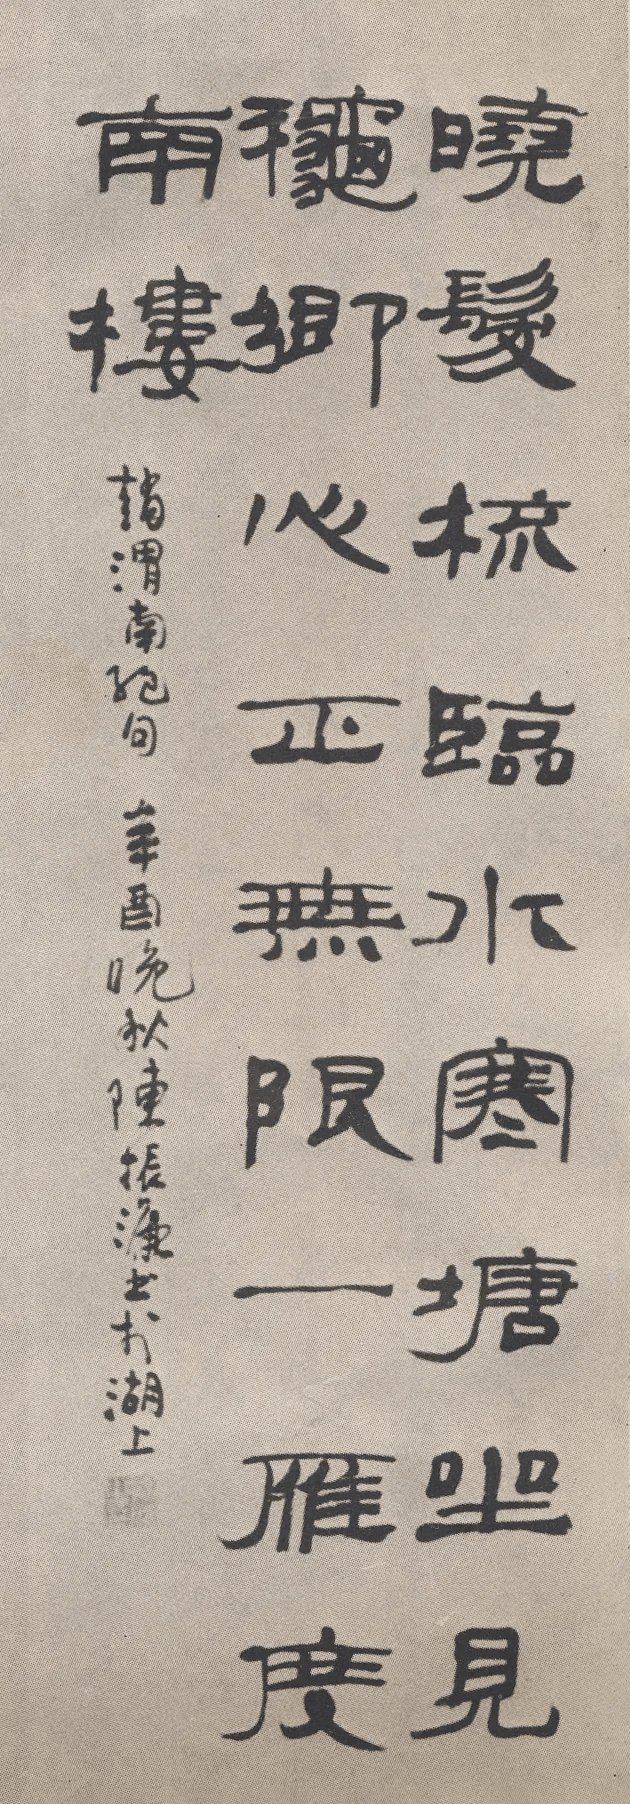 曉髮梳臨水寒塘坐見
龝鄉心正無限一雁度
南樓
趙渭南絕句 辛酉晚秋陳振濂書於湖上